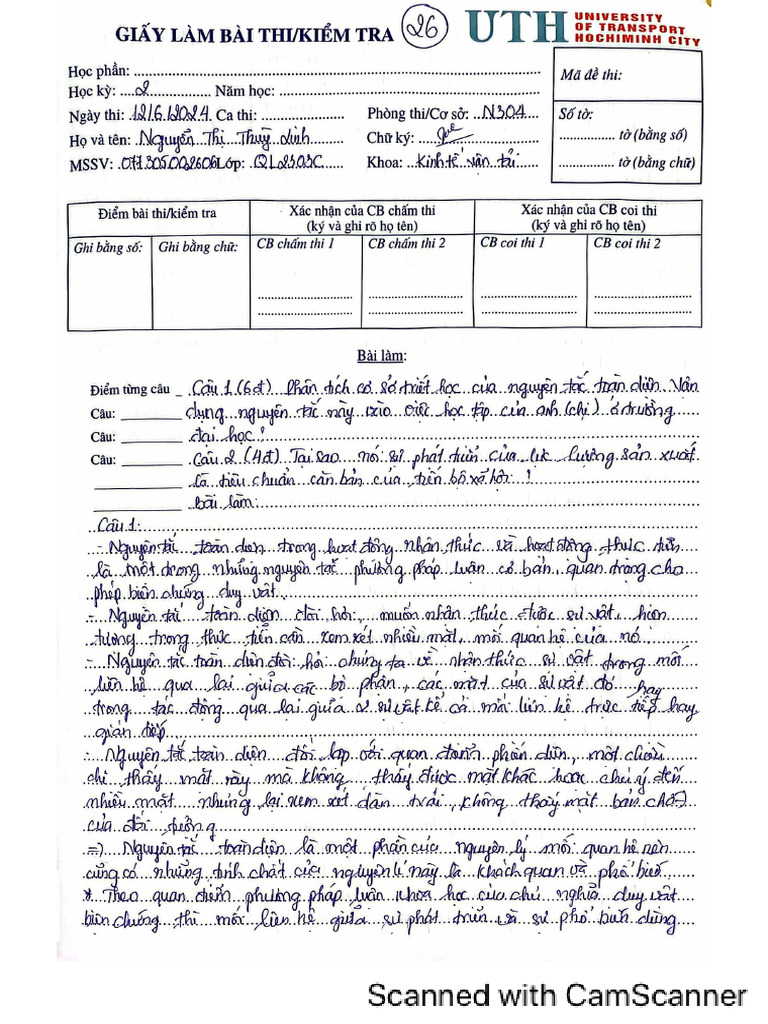 GIẤY LÀM BÀI THI/KIỂM TRA 26 UTH UNIVERSITY OF TRANSPORT HOCHIMINH CITY
Học phần:
Học kỳ: 2 Năm học:
Mã đề thi:
Ngày thi: 12/6/2024 Ca thi: Phòng thi/Cơ sở: N304
Số tờ:
Họ và tên: Nguyễn Thị Thuỳ Linh Chữ ký:
tờ (bằng số)
MSSV: 071305002606 Lớp: QL2303C Khoa: Kinh tế vận tải
tờ (bằng chữ)
Điểm bài thi/kiểm tra Xác nhận của CB chấm thi (ký và ghi rõ họ tên) Xác nhận của CB coi thi (ký và ghi rõ họ tên)
Ghi bằng số: Ghi bằng chữ: CB chấm thi 1 CB chấm thi 2 CB coi thi 1 CB coi thi 2
Bài làm:
Điểm từng câu Câu 1 (6đ) Phân tích cơ sở triết học của nguyên tắc toàn diện. Vận
Câu: dụng nguyên tắc này vào việc học tập của anh (chị) ở trường
Câu: đại học!
Câu: Câu 2 (4đ) Tại sao nói sự phát triển của lực lượng sản xuất
là tiêu chuẩn căn bản của tiến bộ xã hội !
bài làm:
Câu 1:
- Nguyên tắc toàn diện trong hoạt động nhận thức và hoạt động thực tiễn
là một trong những nguyên tắc phương pháp luận cơ bản, quan trọng cho
phép biện chứng duy vật.
- Nguyên tắc toàn diện đòi hỏi, muốn nhận thức được sự vật, hiện
tượng trong thực tiễn cần xem xét nhiều mặt, mối quan hệ của nó
- Nguyên tắc toàn diện đòi hỏi chúng ta về nhận thức sự vật trong mối
liên hệ qua lại giữa các bộ phận, các mặt của sự vật đó hay
trong tác động qua lại giữa 2 sự vật kể cả mối liên hệ trực tiếp hay
gián tiếp
- Nguyên tắc toàn diện đối lập với quan điểm phiến diện, một chiều
chỉ thấy mặt này mà không thấy được mặt khác hoặc chú ý đến
nhiều mặt nhưng lại xem xét dàn trải, không thấy mặt bản chất
của đối tượng
=) Nguyên tắc toàn diện là một phần của nguyên lý mối quan hệ nên
cũng có những tính chất của nguyên lí này là khách quan và phổ biến,
* Theo quan điểm phương pháp luận khoa học của chủ nghĩa duy vật
biện chứng thì mối liên hệ giữa sự phát triển và sự phổ biến dùng
Scanned with CamScanner